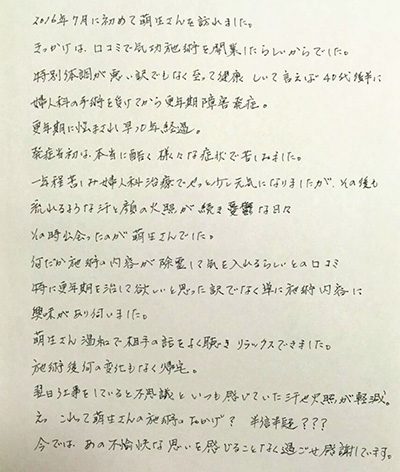 2016年7月に初めて萌生さんを訪れました。
きっかけは、口コミで気功施術を開業したらしいからでした。
特別体調が悪い訳でもなく至って健康 しいて言えば40代後半に
婦人科の手術を受けてから更年期障害発症。
更年期に悩まされ早10年経過。
発症当初は、本当に酷く様々な症状で苦しみました。
一年程苦しみ婦人科治療でやっと少し元気になりましたが、その後も
流れるような汗と顔の火照が続き憂鬱な日々
その時出会ったのが萌生さんでした。
何だか施術の内容が除霊して気を入れるらしいとの口コミ
特に更年期を治して欲しいと思った訳でなく単に施術内容に
興味があり伺いました。
萌生さん温和で相手の話をよく聴きリラックスできました。
施術後何の変化もなく帰宅。
翌日仕事をしていると不思議といつも感じていた汗や火照が軽減。
え、これって萌生さんの施術のおかげ? 半信半疑???
今では、あの不愉快な思いを感じることなく過ごせ感謝しています。